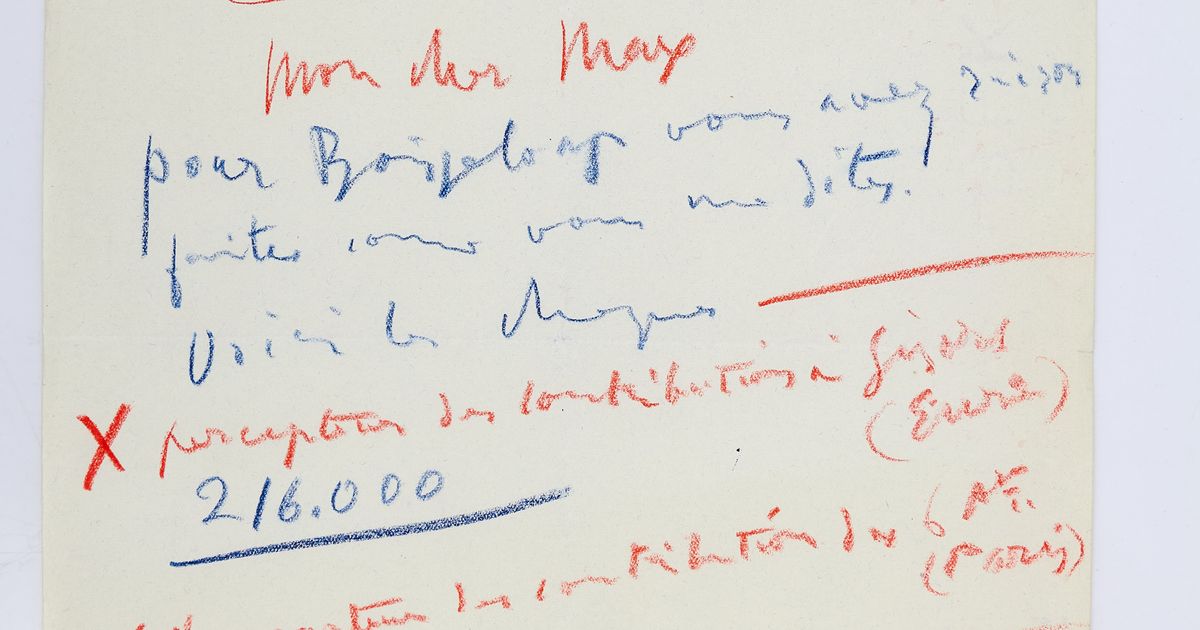 Mon cher Max
pour Boisgeloup vous avez raison
faites come vous me dites.
Voici les cheques
X percepteur des contributions à Gisors
(Eure)
216.000
percepteur des contribution du 6 Ar.
(Paris)